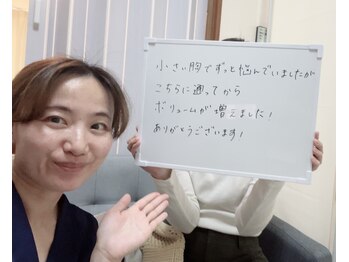 小さい胸でずっと悩んでいましたが
こちらに通ってから
ボリュームが増えました!
ありがとうございます!